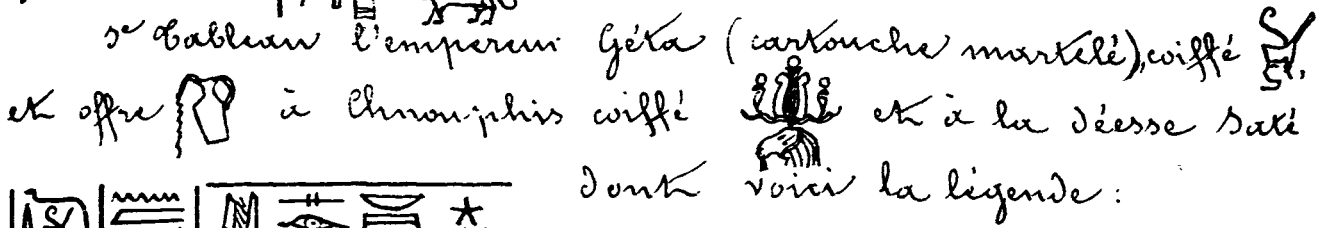 3e Tableau l'empereur Géta (cartouche martelé), coiffé
et offre à Chnouphis coiffé et à la déesse Saté
dont voici la légende :